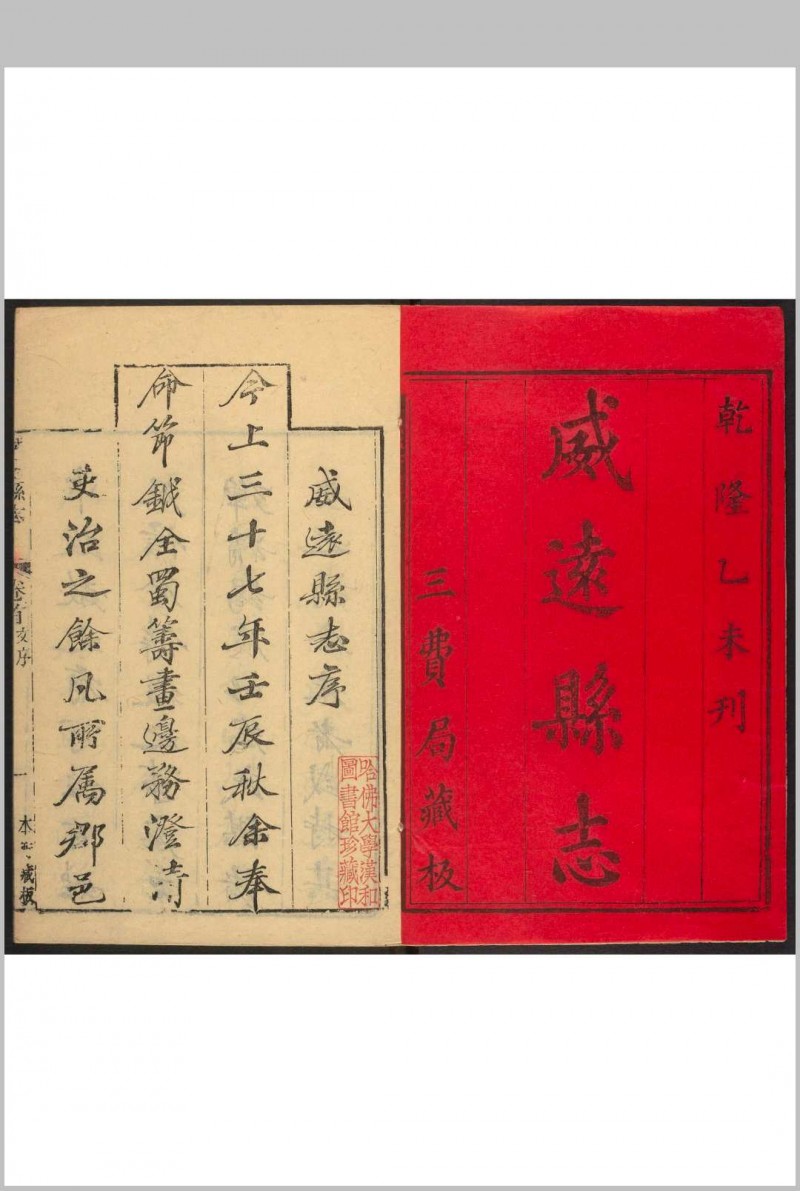 乾隆乙未刊
威遠縣志
三費局藏板
威遠縣志序
今上三十七年壬辰秋余奉
命節鉞全蜀籌畫邊務澄清
吏治之餘凡所属郡邑
哈佛大學漢和
圖書館珍藏印
縣志
卷首
序
一
本 藏板